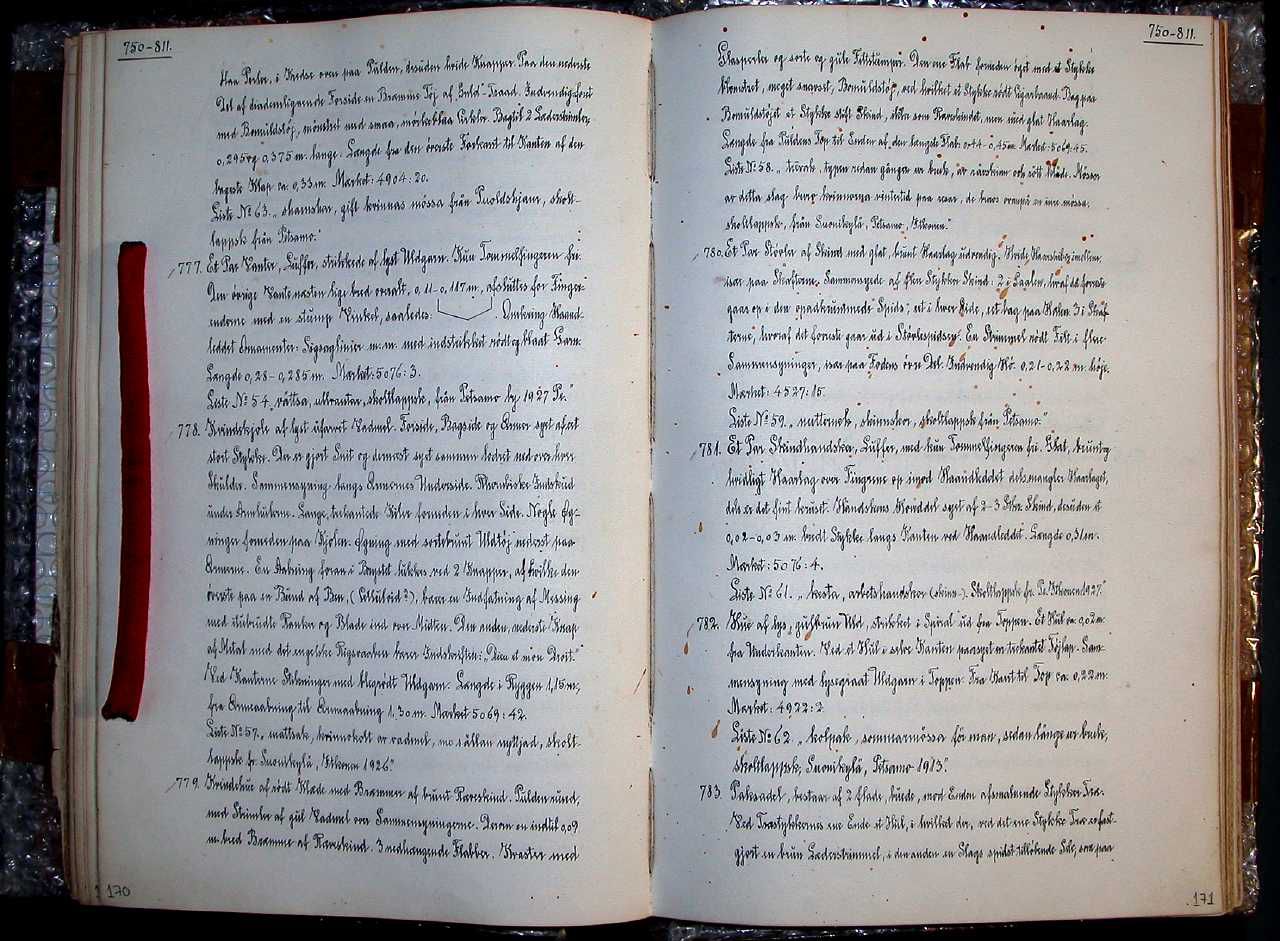 750-811.
blaa Perler, i Kredse oven paa Pulden, desuden hvide Knapper. Paa den nederste
Del af diademlignende Forside en Bræmme Tøj af "Guld"-Traad. Indvendig foret
med Bomuldstøj, mønstret med smaa, mørkeblaa Cirkler. Bagtil 2 Læderstrimler,
0,295 og 0,375 m. lange. Længde fra den øverste Forkant til Kanten af den
bageste Klap ca. 0,33 m. Mærket: 4904:20.
Liste № 63. "shamshar, gift kvinnas mössa från Puoldshjaur, skolt-
lappsk från Petsamo."
777. Et Par Vanter, Luffer, strikkede af lyst Uldgarn. Kun Tommelfingeren fri.
Den øvrige Vante næsten lige bred overalt, 0,11-0,115 m, afsluttes for Finger-
enderne med en stump Vinkel, saaledes: . Omkring Haand-
leddet Ornamenter: Sigsaglinier m.m. med indstrikket rødt og blaat Garn.
Længde 0,28-0,285 m. Mærket: 5076:3.
Liste № 54, våttsa, ullvantar, skoltlappsk, från Petsamo by 1927 Pe."
778. Kvindekjole af lyst ufarvet Vadmel. Forside, Bagside og Ærmer syet af eet
stort Stykke. Der er gjort Snit og dernæst syet sammen lodret ned over hver
Skulder. Sammensyning langs Ærmernes Underside. Rhombiske Indskud
under Armhulerne. Lange, trekantede Kiler forneden i hver Side. Nogle Øg-
ninger forneden paa Kjolen. Øgning med sortebrunt Uldtøj nederst paa
Ærmerne. En Aabning foran i Brystet lukkes ved 2 Knapper, af hvilke den
øverste paa en Bund af Ben, (Celluloid?), bærer en Indfatning af Messing
med itubrudte Ranker og Blade ind over Midten. Den anden, nederste Knap
af Metal med det engelske Rigsvaaben bærer Indskriften: "Dieu et mon Droit."
Ved Kanterne Stikninger med blegrødt Uldgarn. Længde i Ryggen 1,15 m,
fra Ærmeaabning til Ærmeaabning 1,30 m. Mærket 5069:42.
Liste № 57. "mattsak, kvinnokolt av vadmal, nu sällan nyttjad, skolt-
lappsk fr. Suonikylä, Itkonen 1926."
779. Kvindehue af rødt Klæde med Bræmmer af brunt Ræveskind. Pulden rund,
med Strimler af gul Vadmel over Sammensyningerne. Derom en indtil 0,09
m. bred Bræmme af Ræveskind. 3 nedhængende Flapper. Kvaster med
170
750-811.
Glasperler og sorte og gule Filtstumper. Den ene Flap forneden øget med et Stykke
blomstret, meget snavset, Bomuldstøj, ved hvilket et Stykke rødt Cigarbaand. Bag paa
Bomuldstøjet et Stykke stift Skind, ikke som Ræveskindet, men med glat Haarlag.
Længde fra Puldens Top til Enden af den længste Flap: 0,44-0,45 m. Mærket: 5069:45.
Liste № 58. " typen redan gången ur bruk, av rävskinn och rött kläde. Mössor
av detta slag buro kvinnorna vintertid paa resor, de bars ovanpå en inre mössa.
skoltlappsk, från Suonikylä, Petsamo, Itkonen."
780. Et Par Støvler af Skind med glat, brunt Haarlag udvendig. Hvide Haarstriber imellem,
især paa Skafterne. Sammensyede af flere Stykker Skind: 2 i Saalen, hvoraf det forreste
gaar op i den opadkrummede Spids, eet i hver Side, eet bag paa Hælen. 3 i Skaf-
terne, hvoraf det forreste gaar ud i Støvlespidsen. En Strimmel rødt Filt i flere
Sammensyninger, især paa Fodens øvre Del. Indvendig Hø. 0,21-0,22 m. høje.
Mærket: 4527:15.
Liste № 59. " skinnskor, skoltlappsk från Petsamo."
781. Et Par Skindhandsker, Luffer, med kun Tommelfingeren fri. Glat, brunt og
hvidligt Haarlag over Fingrene op imod Haandleddet dels mangler Haarlaget,
dels er det fint kruset. Handskens Hoveddel syet af 2-3 Stkr. Skind, desuden et
0,02-0,03 m. bredt Stykke langs Kanten ved Haandleddet. Længde 0,31 m.
Mærket: 5076:4.
Liste № 61. " kista, arbetshandskar (skinn-). Skoltlappsk fr. Pe. Itkonen 1927."
782. Hue af lys, gulbrun Uld, strikket i Spiral ud fra Toppen. Et Hul ca. 0,02 m.
fra Underkanten. Ved et Hul i selve Kanten paasyet en firkantet Tøjlap. Sam-
mensyning med lysegraat Uldgarn i Toppen. Fra Kant til Top ca. 0,22 m.
Mærket: 4922:2.
Liste № 62. " kolpak, sommarmössa för man, sedan länge ur bruk,
skoltlappsk, Suonikylä, Petsamo 1913."
783. Paksadel, bestaar af 2 flade, buede, mod Enden afsmalnende Stykker Træ.
Ved Træstykkernes ene Ende et Hul, i hvilket der, ved det ene Stykke Træ er fast-
gjort en brun Læderstrimmel, i den anden en Slags spidst tilløbende Sele, som paa
171